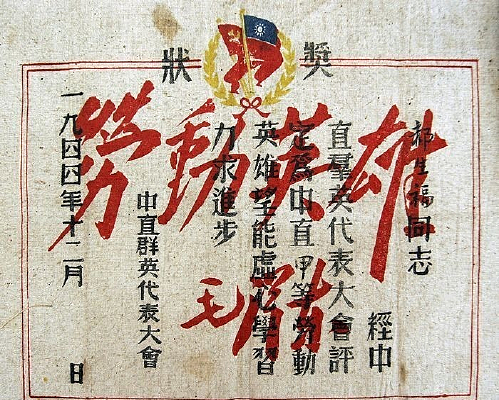 獎狀
勞動英雄
毛
生福同志
經中
直羣英代表大會評
定為中直甲等勞動
英雄望能虛心學習
力求進步
中直群英代表大會
一九四四年十二月 日